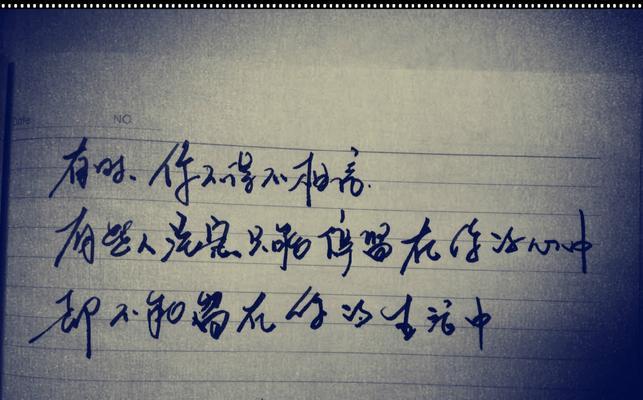 Date
NO
有时、你不得不相信.
有些人注定只能停留在你的心中
却不能留在你的生活中